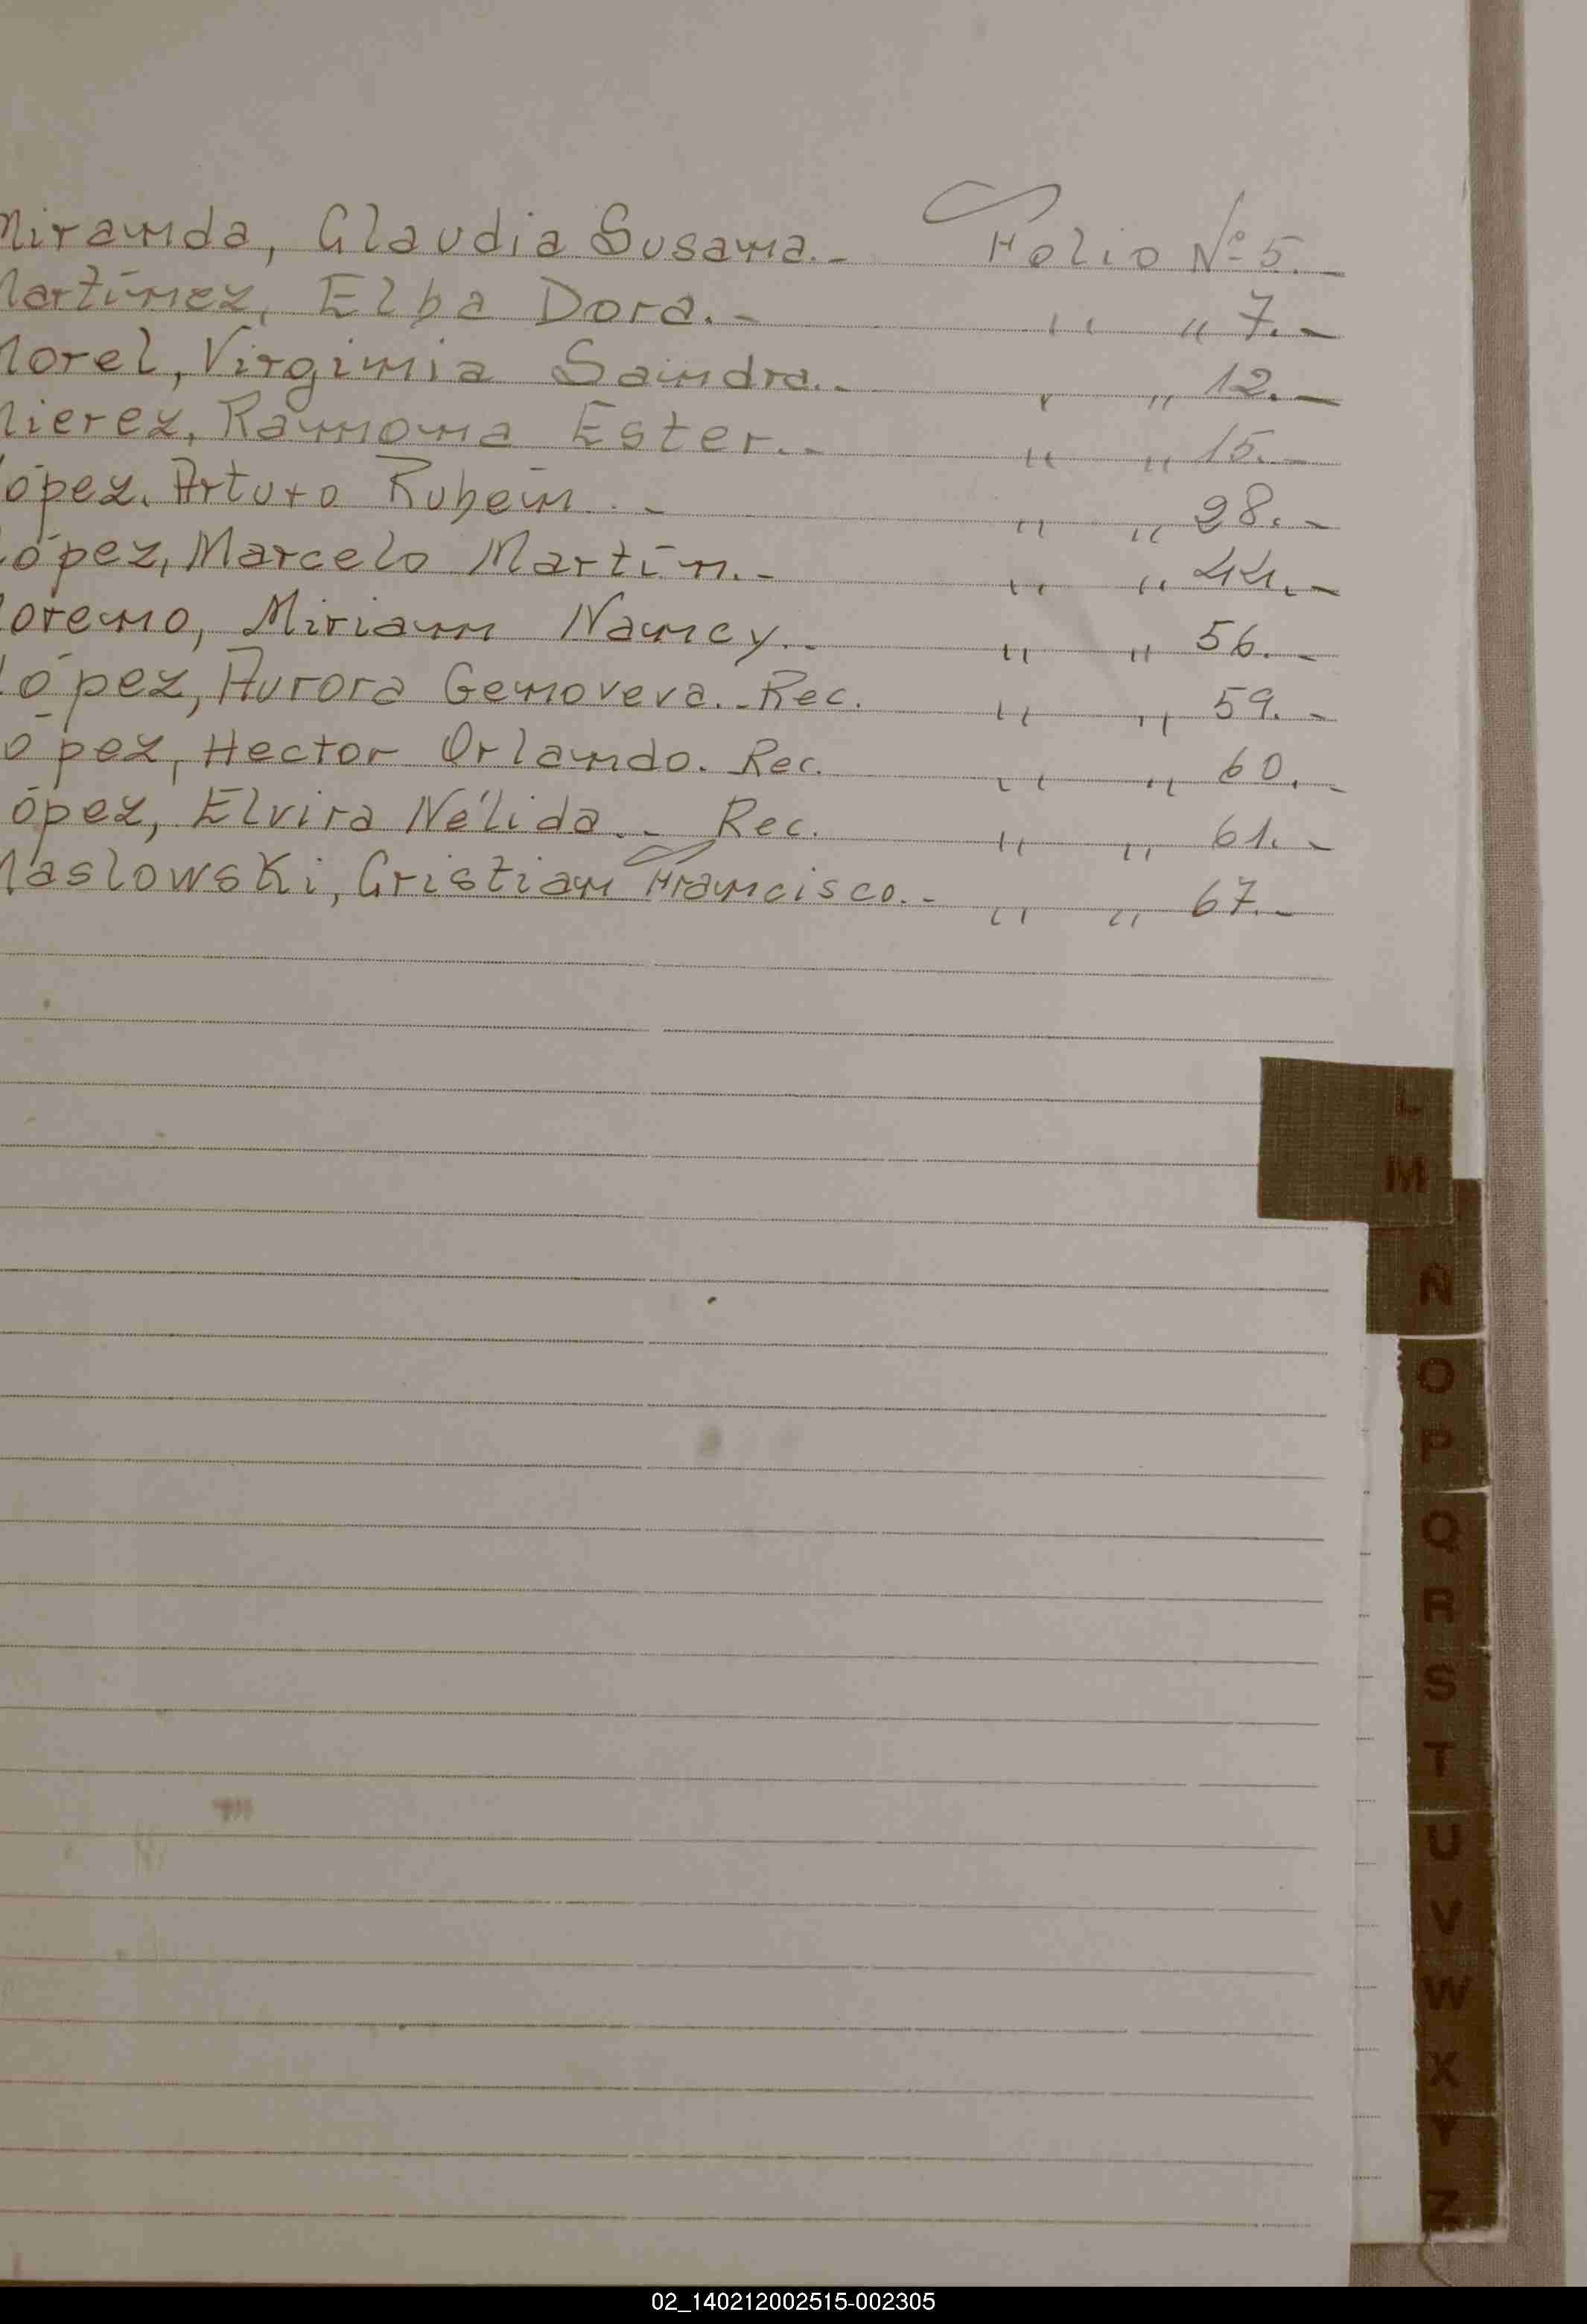 Miranda, Claudia Susana.- Folio Nº 5.-
Martínez, Elba Dora.- " " 7.-
Morel, Virginia Sandra.- " " 12.-
Mierez, Ramona Ester.- " " 15.-
López, Arturo Rubén.- " " 28.-
López, Marcelo Martín.- " " 44.-
Moreno, Miriam Nancy.- " " 56.-
López, Aurora Genoveva.- Rec. " " 59.-
López, Hector Orlando. Rec. " " 60.-
López, Elvira Nélida.- Rec. " " 61.-
Maslowski, Cristian Francisco.- " " 67.-
L
M
N
O
P
Q
R
S
T
U
V
W
X
Y
Z
02_140212002515-002305